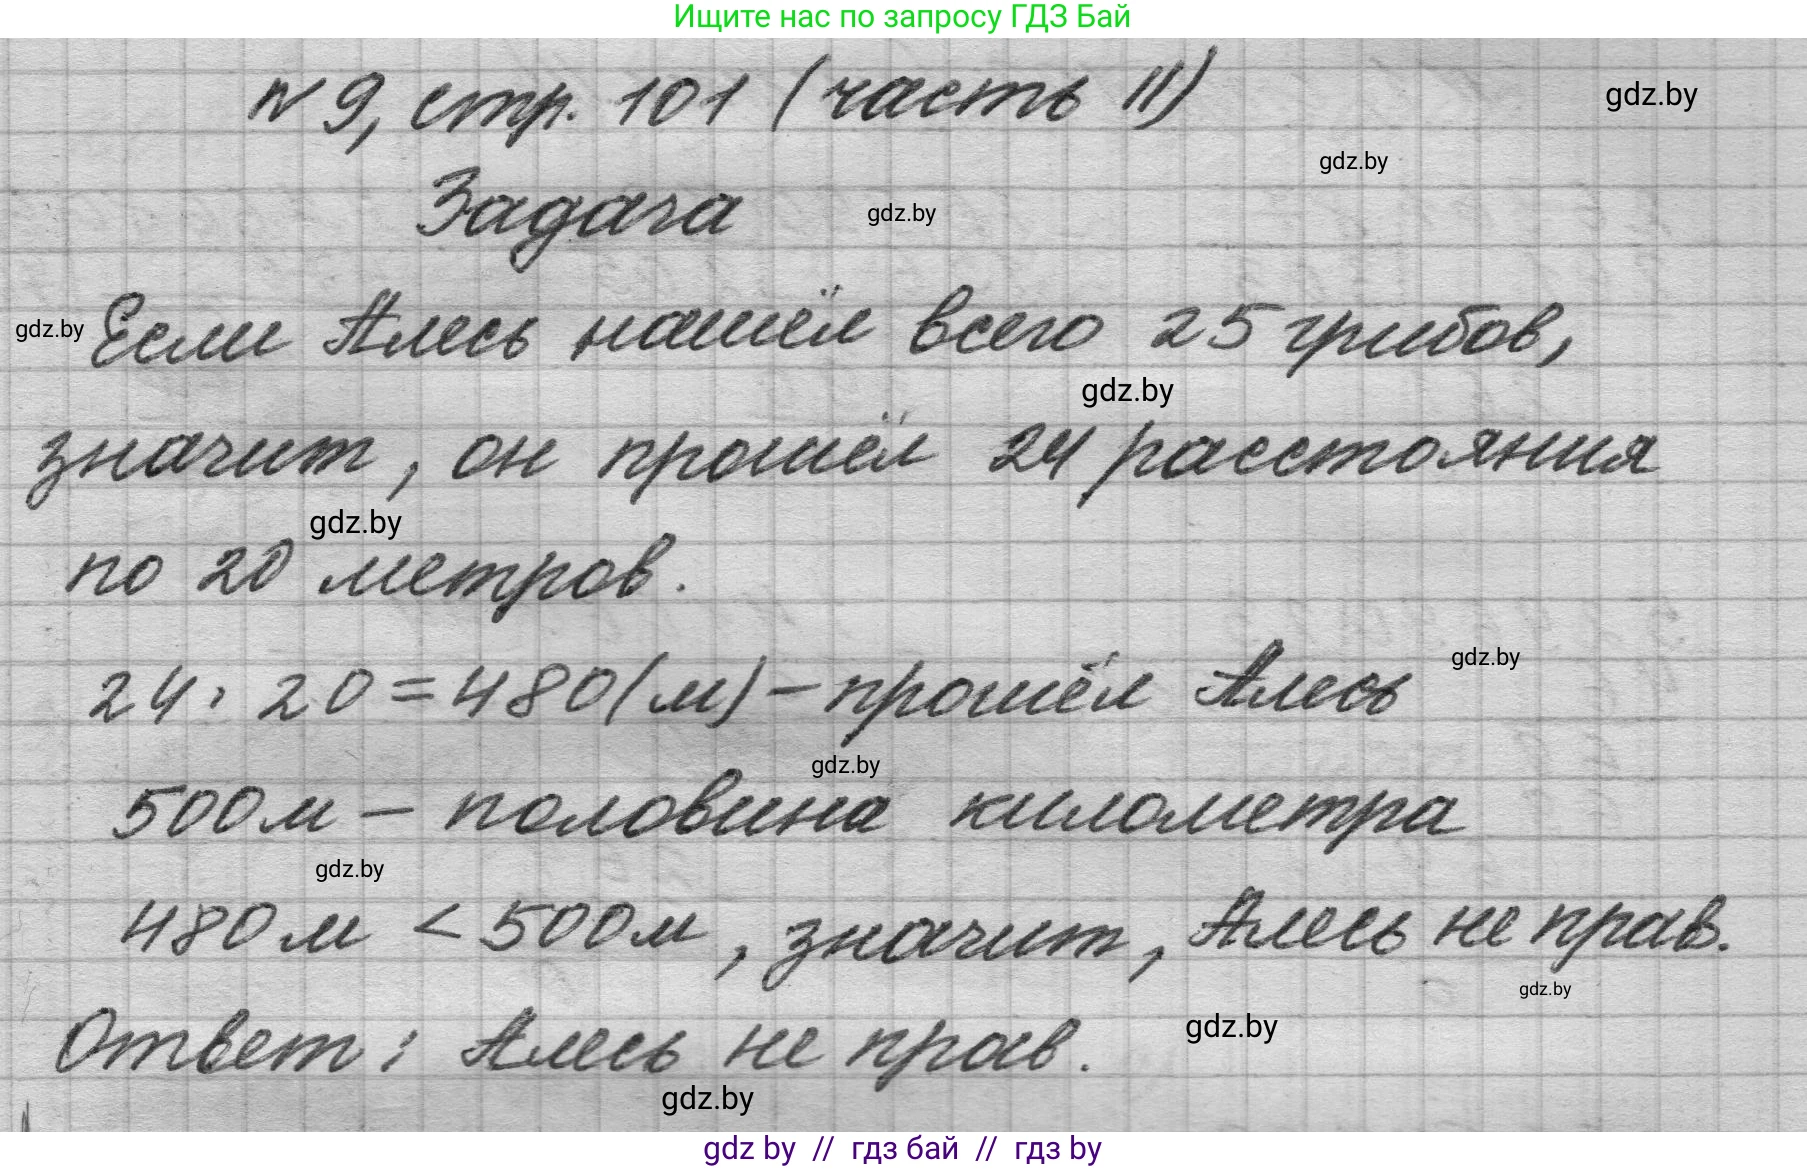 Ищите нас по запросу ГДЗ Бай
N 9, стр. 101 (часть II)
gdz.by
gdz.by
Задача
gdz.by
gdz.by
Если Алесь нашёл всего 25 грибов,
gdz.by
значит, он прошёл 24 расстояния
gdz.by
по 20 метров.
24 · 20 = 480 (м) – прошёл Алесь
gdz.by
gdz.by
500 м – половина километра
gdz.by
480 м < 500 м, значит, Алесь не прав.
gdz.by
Ответ: Алесь не прав.
gdz.by
gdz.by
gdz by // гдз бай // гдз by